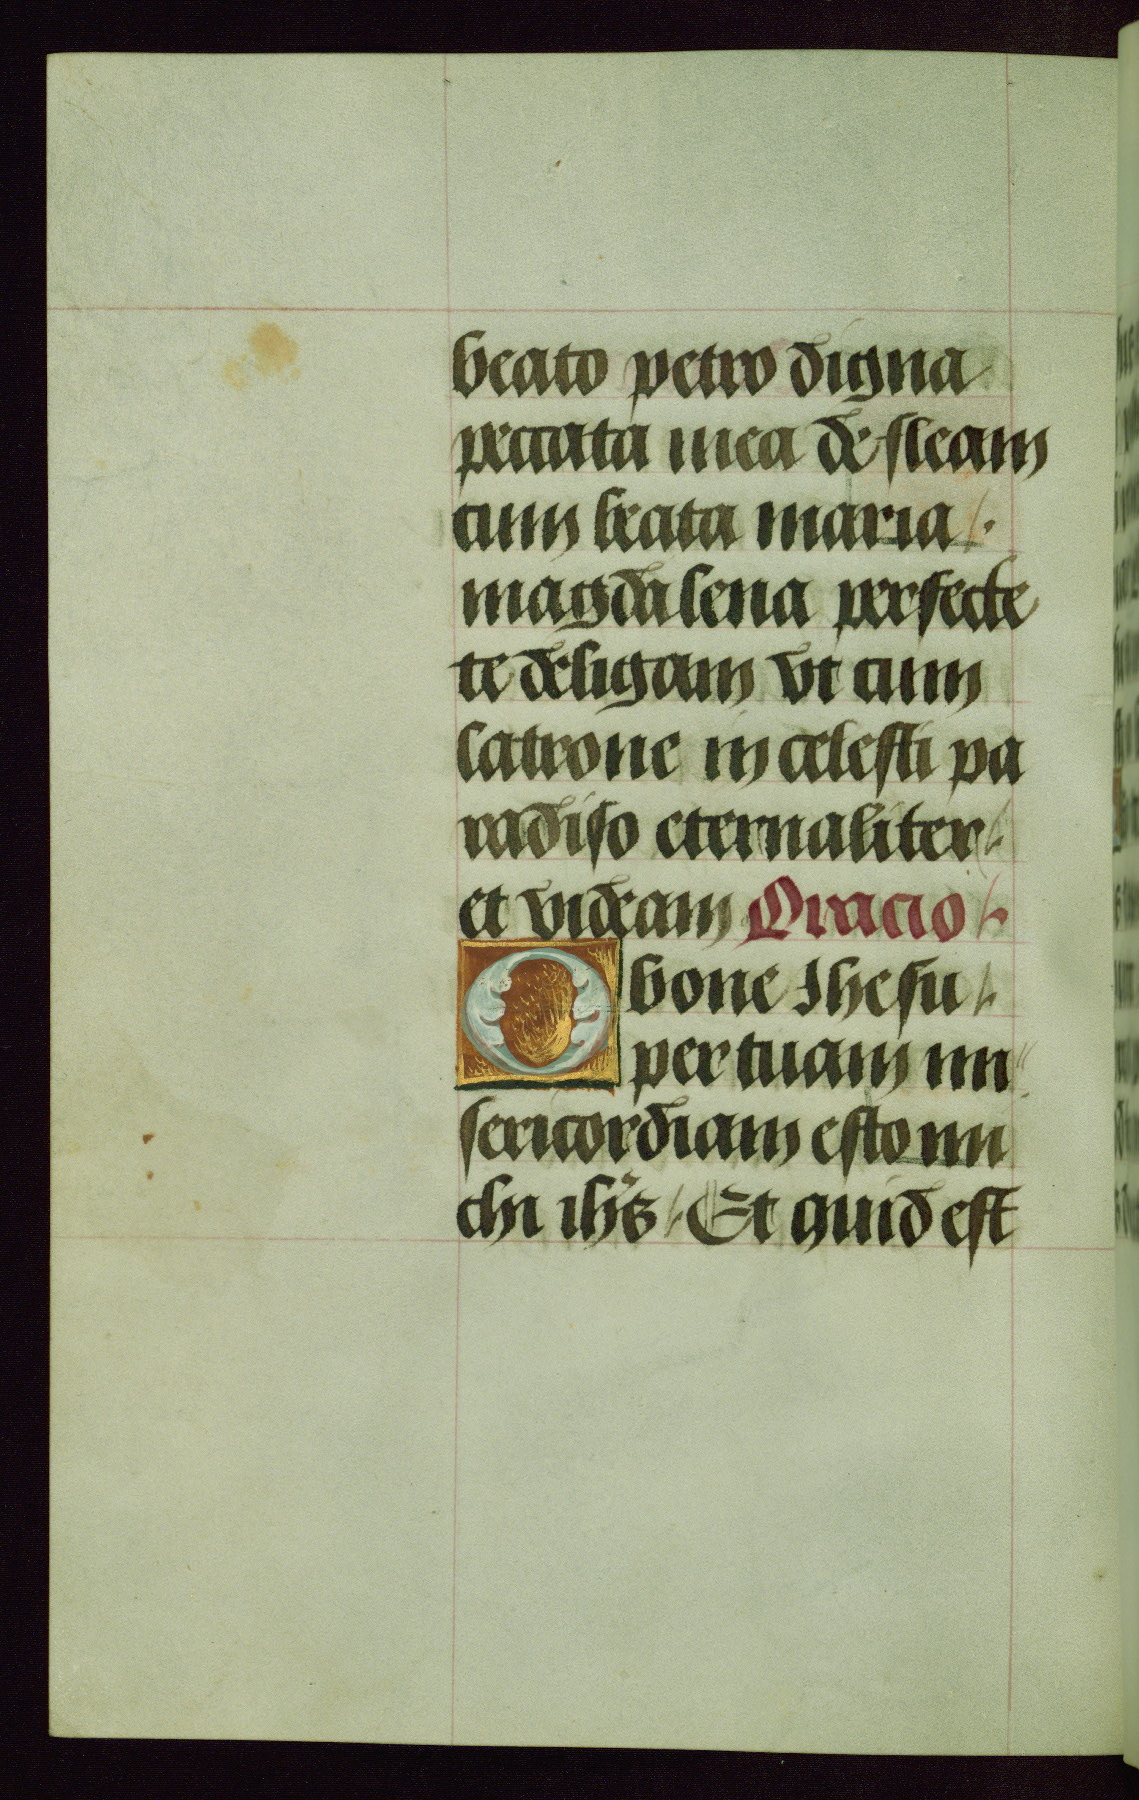 beato petro digna
peccata mea defleam
cum beata maria /.
magdalena perfecte
te deligam vt cum
latrone in celesti pa
radiso eternaliter /
et videam Oracio /.
O bone Ihesu /.
per tuam mi
sericordiam esto mi
chi ihs / Et quid est